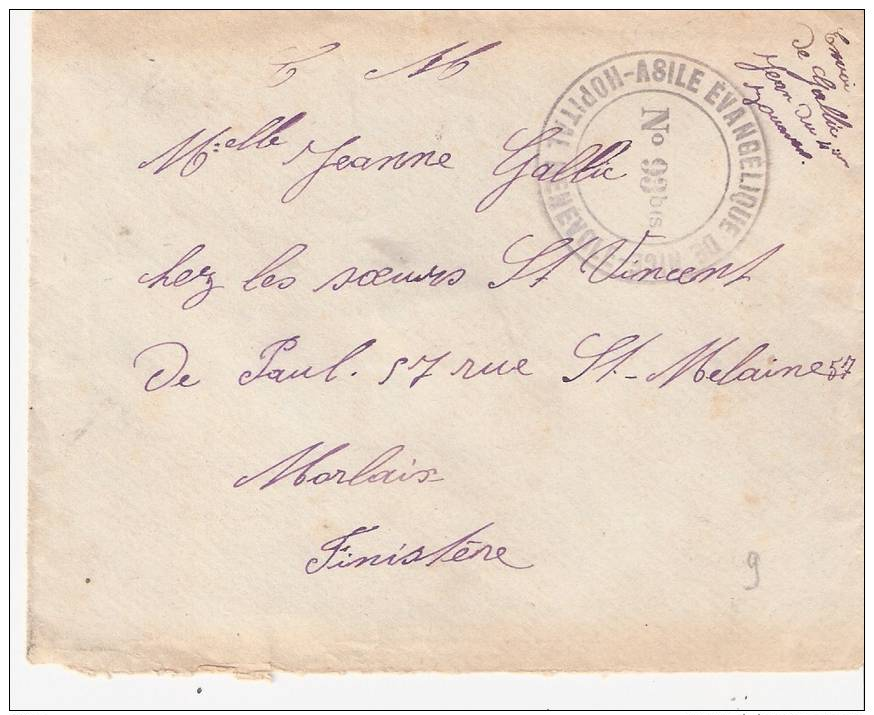 F M
Melle Jeanne Gallic
chez les sœurs St Vincent
De Paul. 57 rue St-Melaine 57
Morlaix
Finistère
HOPITAL-ASILE ÉVANGÉLIQUE DE NICE
No 99 bis
Envoi
de Gallic
Jean du 4e
Zouaves.
9